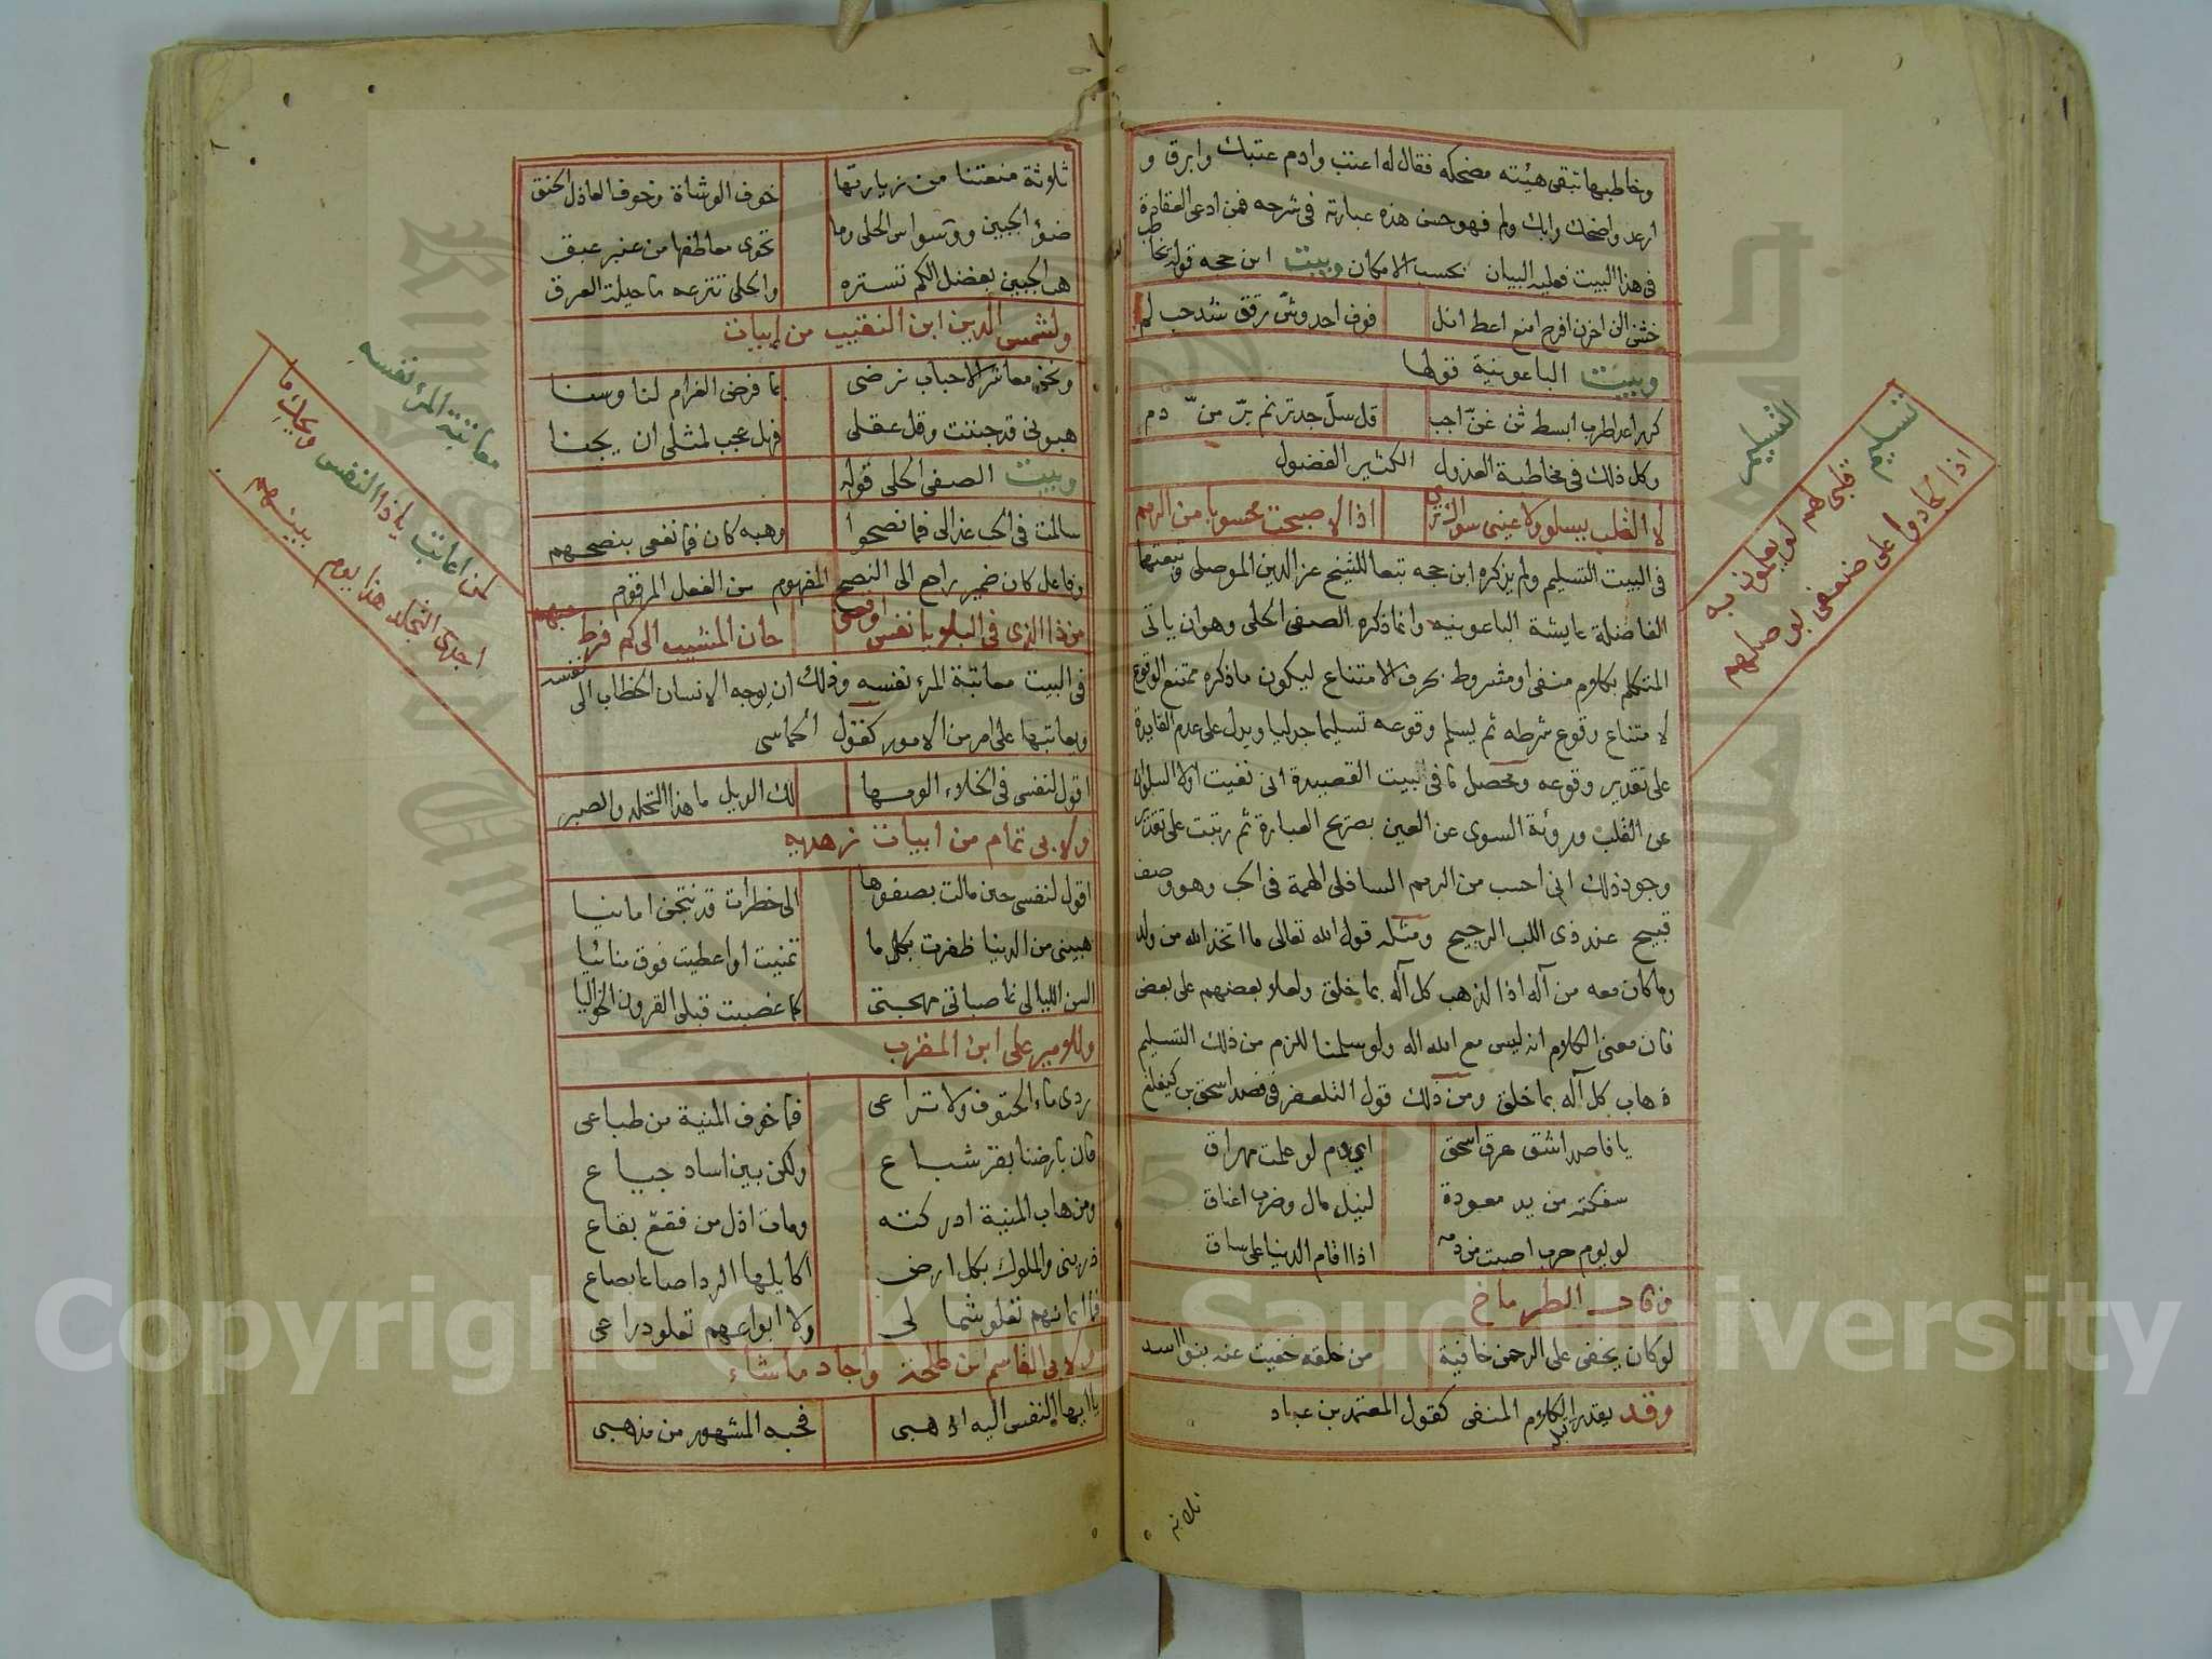 وخاطبها تبقى هيئته مضحكه فقال له اعتب وادم عتبك وابرق و
ارعد واضحك وابك ولم فهو حسن هذه عبارته في شرحه فمن ادعى العقادة
في هذا البيت فعليه البيان بحسب الامكان وبيت ابن حجه قوله
خشن الن احزن افرح امنع اعط انل
فوف اجد وشّ رقق شد حب لم
وبيت الباعونية قولها
ابسط
وكل ذلك في مخاطبة العذول الكثير الفضول
لا القلب يسلو ولا عيني سواك ترى
اذا لاصبحت محسوبا من الرمم
في البيت التسليم ولم يذكره ابن حجه تبعا للشيخ عز الدين الموصلي وتبعتهما
الفاضلة عايشة الباعونيه وانما ذكره الصفي الحلي وهو ان ياتى
المتكلم بكلام منفى او مشروط بحرف الامتناع ليكون ما ذكره ممتنع الوقوع
لامتناع وقوع شرطه ثم يسلم وقوعه تسليما جدليا ويدل على عدم الفايدة
على تقدير وقوعه ومحصل ما في البيت القصيدة انى نفيت اولا السلوان
عن القلب وروئة السوى عن العين بصريح العبارة ثم رتبت على تقدير
وجود ذلك انى احسب من الرمم السافلى الهمة في الحب وهو وصف
قبيح عند ذى اللب الرجيح ومثله قول الله تعالى ما اتخذ الله من ولد
وما كان معه من آله اذا لذهب كل آله بما خلق ولعلا بعضهم على بعض
فان معنى الكلام انه ليس مع الله اله ولو سلمنا للزم من ذلك التسليم
ذهاب كل آله بما خلق ومن ذلك قول التلعفرى في فصد اسحق بن كيغلغ
يا فاصدا شق عرق اسحق
اي دم لو علمت مهراق
سفكته من يد معودة
لنيل مال وضرب اعناق
لو يوم حرب اصبت من دمه
اذا اقام الدنيا على ساق
وقال الطرماخ
لو كان يخفى على الرحمن خافية
من خلقه خفيت عنه بنو اسد
وقد يقدر الكلام المنفى كقول المعتمد بن عباد
التسليم
تسليم قلبى لهم لو يعلمون به
اذا لجادوا على ضعفى بوصلهم
ثلاثة منعتنا من زيارتها
خوف الوشاة وخوف العاذل الحنق
ضؤ الجبين ووسواس الحلى وما
تحوى معاطفها من عنبر عبق
هب الجبين بفضل الكم تستره
والحلى تنزعه ما حيلة العرق
ولشمس الدين ابن النقيب من ابيات
ونحن معاشر الاحباب نرضى
بما فرض الغرام لنا وسنا
هبونى قد جننت وقل عقلى
فهل عجب لمثلى ان يجنا
وبيت الصفى الحلى قوله
سالمت في الحب عذالى فما نصحوا
وهبه كان فما نفعى بنصحهم
وفاعل كان ضمير راجع الى النصح المفهوم من الفعل المرقوم
من ذا الذى في البلا يا نفس اوقعنى
حان المشيب الى كم فرط حبهم
في البيت معاتبة المرء نفسه وذلك ان يوجه الانسان الخطاب الى نفسه
ويعاتبها على امر من الامور كقول الحماسى
اقول لنفسى في الخلاء الومها
لك الويل ما هذا التجلد والصبر
ولابى تمام من ابيات زهديه
اقول لنفسى حين مالت بصفوها
الى خطرات قد نتجن امانيا
هبينى من الدنيا ظفرت بكل ما
تمنيت او اعطيت فوق منائيا
اليس الليالى غاصباتى مهجتى
كما غصبت قبلى القرون الخواليا
وللامير على ابن المقرب
ردى ماء الحتوف ولا تراعى
فما خوف المنية من طباعى
ولكن بين اساد جياع
ومن هاب المنية ادركته
ومات اذل من فقع بقاع
ذرينى والملوك بكل ارض
اكايلها الردا صاعا بصاع
فما ايمانهم تعلو شمالى
ولا ابواعهم تعلو ذراعى
ولابى القاسم ابن طلحة واجاد ما شاء
يا ايها النفس اليه اذهبى
فحبه المشهور من مذهبى
معاتبة المرء نفسه
كن اعاتب يا ذا النفس ويحك ما
اجدى التجلد هذا يوم بينهم